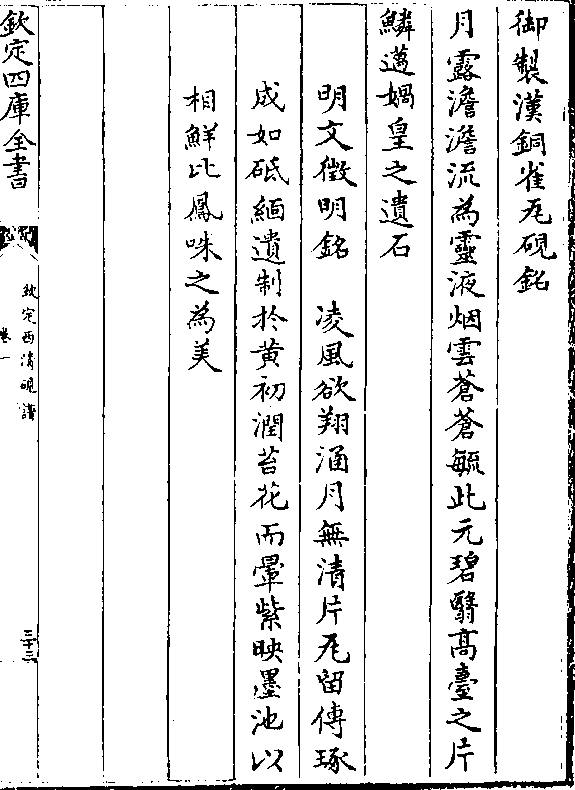 御製漢銅雀瓦硯銘
月露澹澹流為靈液烟雲蒼蒼毓此元碧翳高臺之片
鱗邁媧皇之遺石
明文徵明銘　凌風欲翔涵月無清片瓦留傳琢
成如砥緬遺制於黄初潤苔花而暈紫映墨池以
相鮮比鳳咮之為美
欽定四庫全書
欽定西清硯譜
卷一
三十三